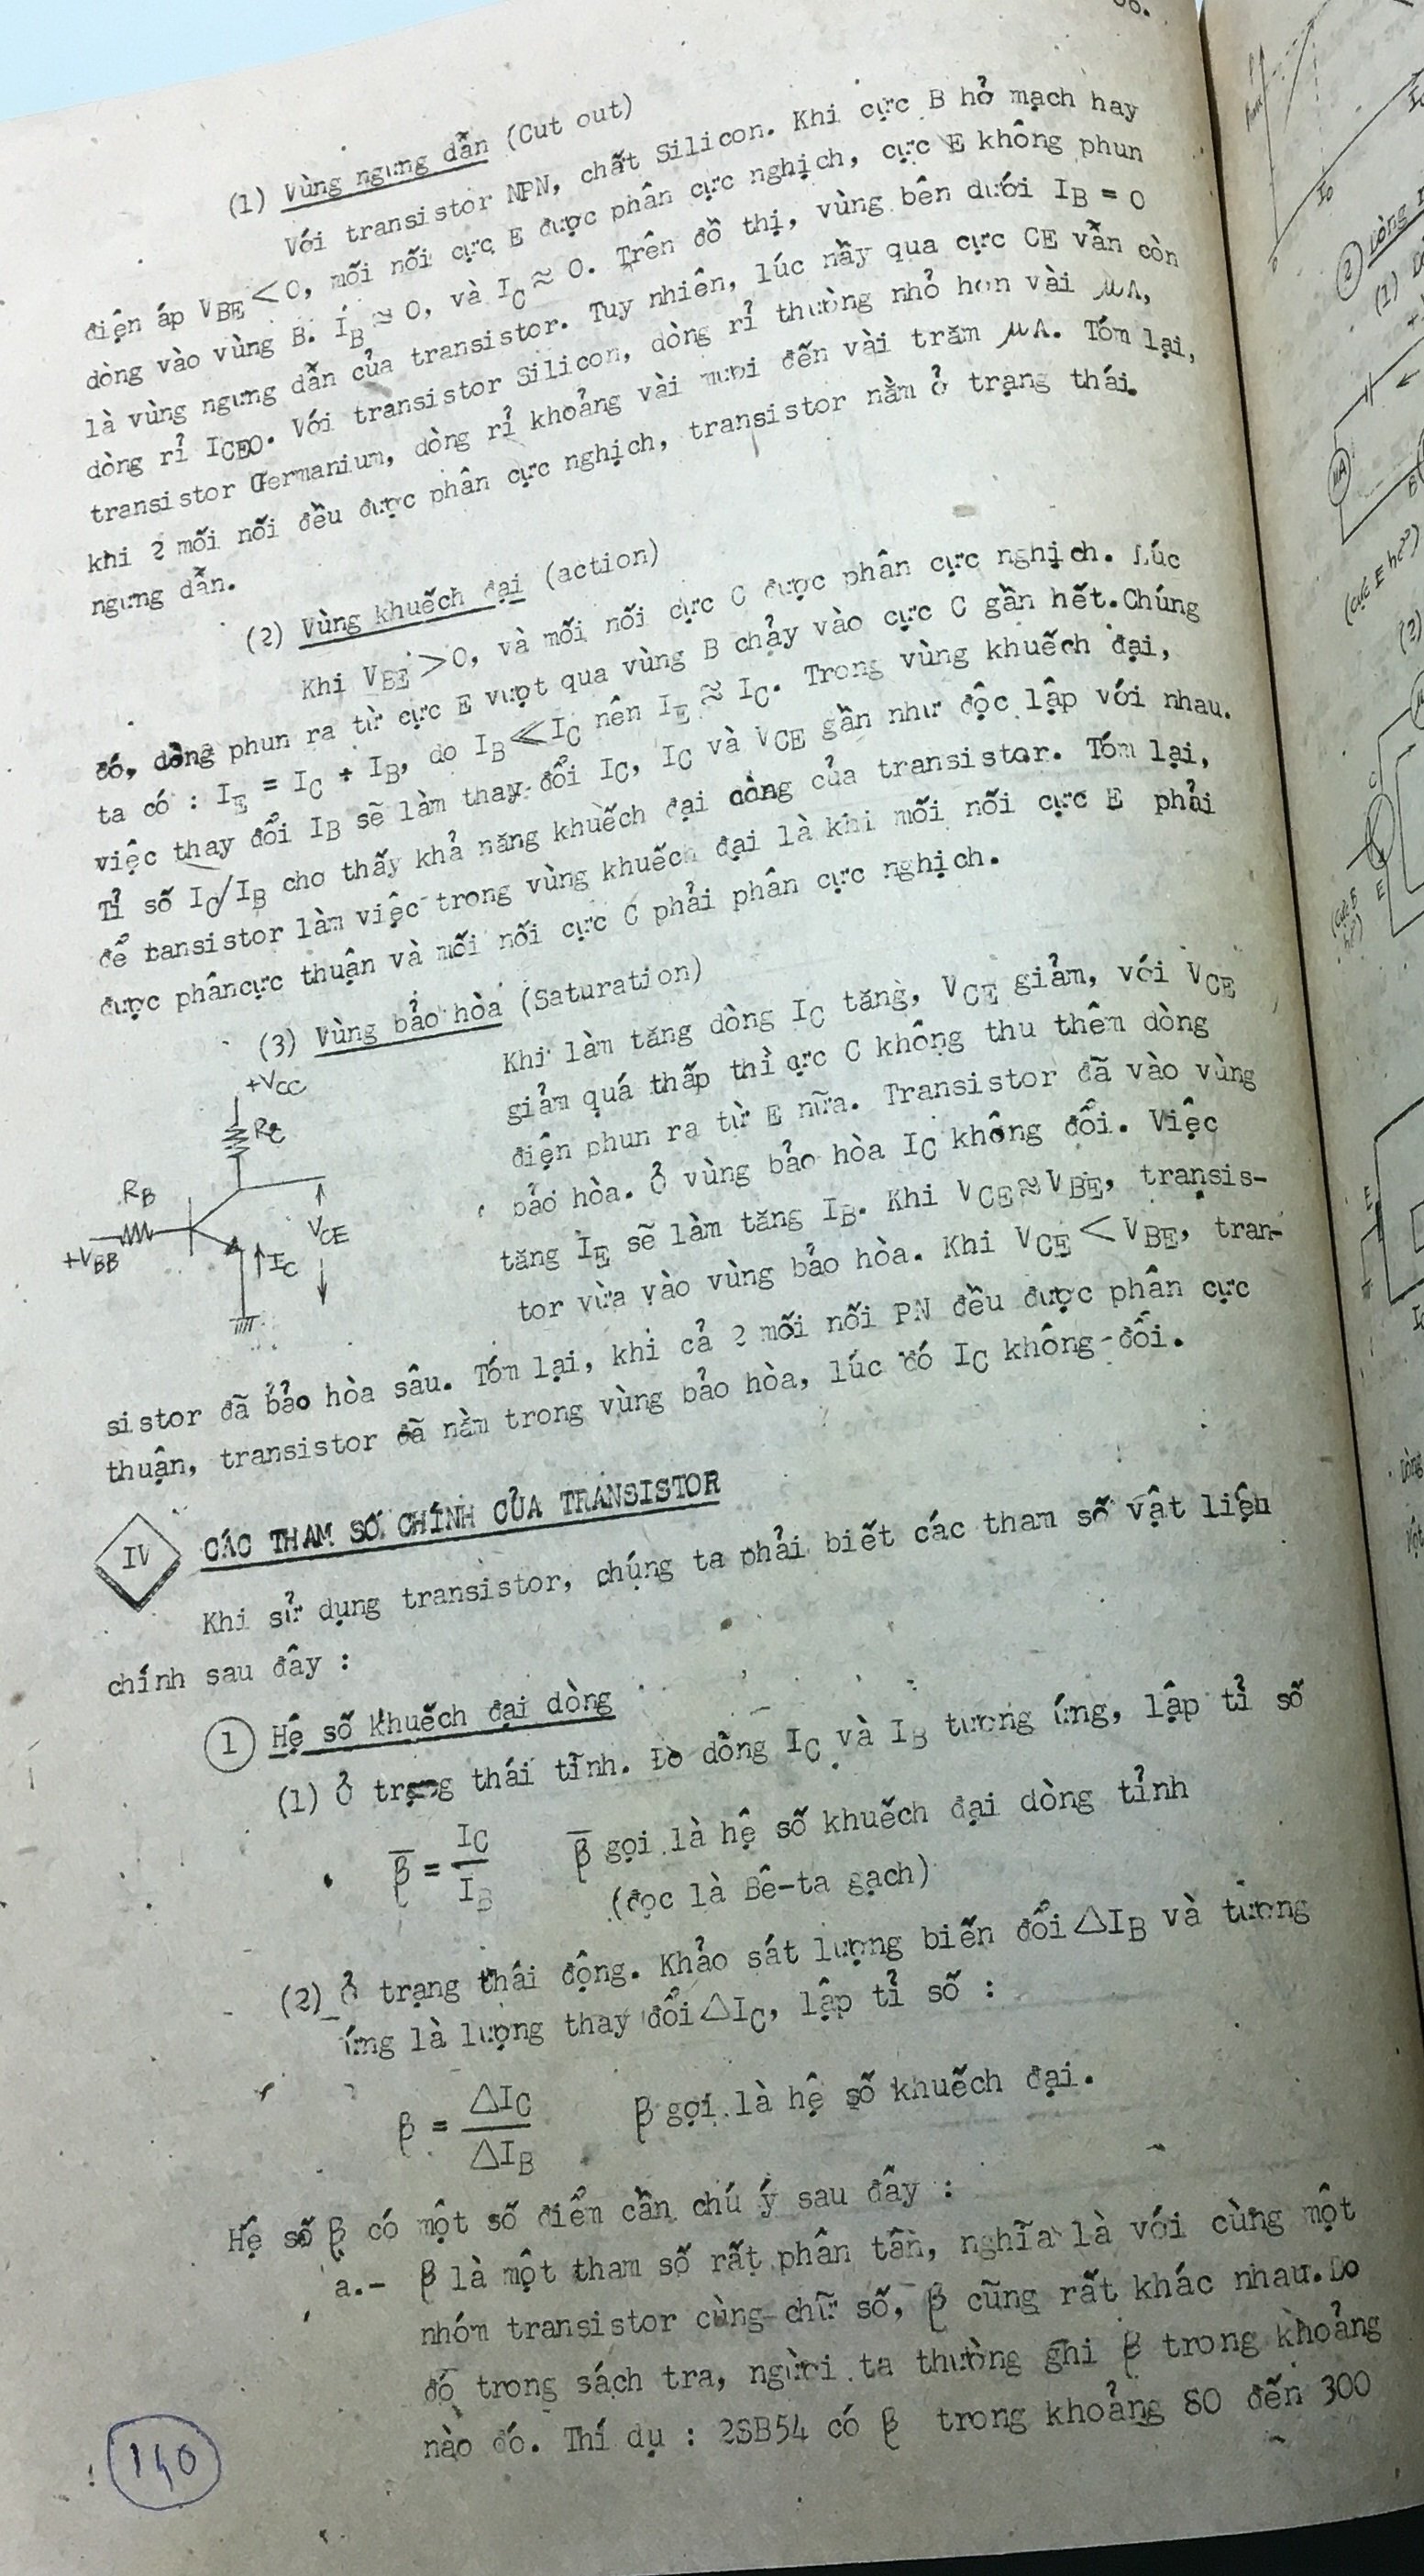 (1) Vùng ngưng dẫn (Cut out)
Với transistor NPN, chất Silicon. Khi cực B hở mạch hay
điện áp VBE < 0, mối nối cực E được phân cực nghịch, cực E không phun
dòng vào vùng B. IB ≈ 0, và IC ≈ 0. Trên đồ thị, vùng bên dưới IB = 0
là vùng ngưng dẫn của transistor. Tuy nhiên, lúc nầy qua cực CE vẫn còn
dòng rỉ ICEO. Với transistor Silicon, dòng rỉ thường nhỏ hơn vài μA,
transistor Germanium, dòng rỉ khoảng vài mươi đến vài trăm μA. Tóm lại,
khi 2 mối nối đều được phân cực nghịch, transistor nằm ở trạng thái
ngưng dẫn.
(2) Vùng khuếch đại (action)
Khi VBE > 0, và mối nối cực C được phân cực nghịch. Lúc
đó, dòng phun ra từ cực E vượt qua vùng B chảy vào cực C gần hết. Chúng
ta có : IE = IC + IB, do IB ≪ IC nên IE ≈ IC. Trong vùng khuếch đại,
việc thay đổi IB sẽ làm thay đổi IC, IC và VCE gần như độc lập với nhau.
Tỉ số IC/IB cho thấy khả năng khuếch đại dòng của transistor. Tóm lại,
để tansistor làm việc trong vùng khuếch đại là khi mối nối cực E phải
được phâncực thuận và mối nối cực C phải phân cực nghịch.
(3) Vùng bảo hòa (Saturation)
Khi làm tăng dòng IC tăng, VCE giảm, với VCE
giảm quá thấp thì cực C không thu thêm dòng
điện phun ra từ E nữa. Transistor đã vào vùng
bảo hòa. Ở vùng bảo hòa IC không đổi. Việc
tăng IE sẽ làm tăng IB. Khi VCE ≈ VBE, transis-
tor vừa vào vùng bảo hòa. Khi VCE < VBE, tran-
+VCC
RC
RB
+VBB
IC
VCE
sistor đã bảo hòa sâu. Tóm lại, khi cả 2 mối nối PN đều được phân cực
thuận, transistor đã nằm trong vùng bảo hòa, lúc đó IC không đổi.
IV CÁC THAM SỐ CHÍNH CỦA TRANSISTOR
Khi sử dụng transistor, chúng ta phải biết các tham số vật liệu
chính sau đây :
1 Hệ số khuếch đại dòng
(1) Ở trạng thái tĩnh. Đo dòng IC và IB tương ứng, lập tỉ số
β̄ = IC / IB β̄ gọi là hệ số khuếch đại dòng tỉnh
(đọc là Bê-ta gạch)
(2) Ở trạng thái động. Khảo sát lượng biến đổi △IB và tương
ứng là lượng thay đổi △IC, lập tỉ số :
β = △IC / △IB β gọi là hệ số khuếch đại.
Hệ số β có một số điểm cần chú ý sau đây :
a.- β là một tham số rất phân tán, nghĩa là với cùng một
nhóm transistor cùng chữ số, β cũng rất khác nhau. Do
đó trong sách tra, người ta thường ghi β trong khoảng
nào đó. Thí dụ : 2SB54 có β trong khoảng 80 đến 300
140
2 Dòng
(1)
μA
B
(cực E hở)
(2)
C
E
(cực B
hở)
E